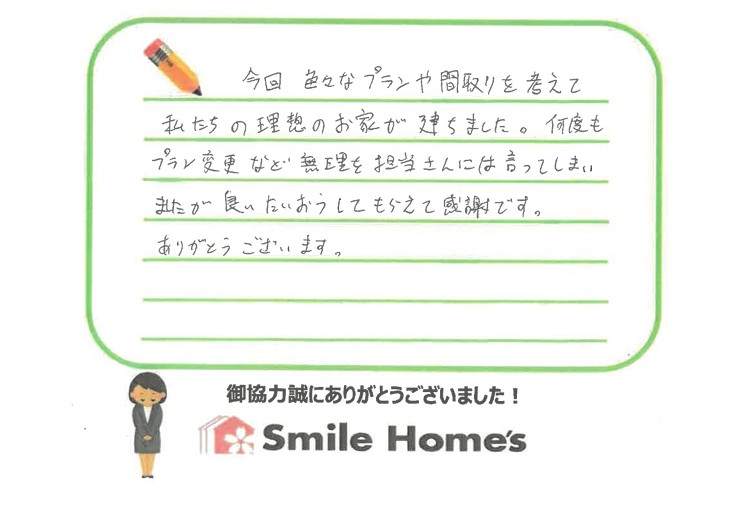 今回 色々なプランや間取りを考えて
私たちの理想のお家が建ちました。何度も
プラン変更など無理を担当さんには言ってしまい
ましたが良いたいおうしてもらえて感謝です。
ありがとうございます。
御協力誠にありがとうございました!
Smile Home's